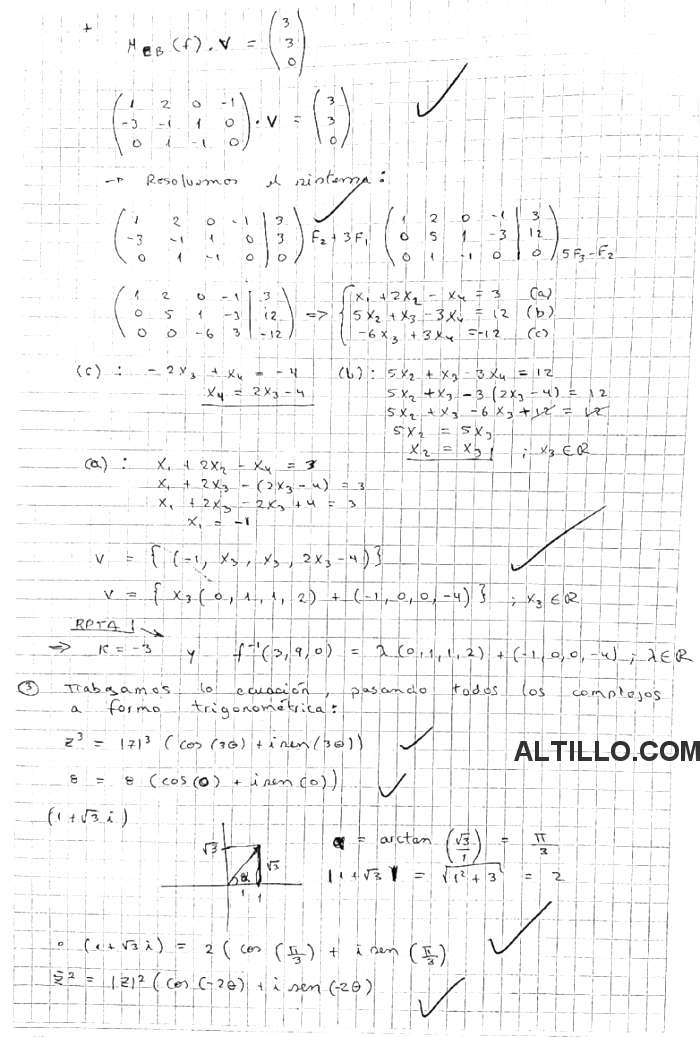 +
M_{CB}(f) . V = (3 3 0)
(1 2 0 -1
-3 -1 1 0
0 1 -1 0) . V = (3 3 0)
→ Resolvemos el sistema:
(1 2 0 -1 | 3
-3 -1 1 0 | 3
0 1 -1 0 | 0) F₂+3F₁ (1 2 0 -1 | 3
0 5 1 -3 | 12
0 1 -1 0 | 0) 5F₃-F₂
(1 2 0 -1 | 3
0 5 1 -3 | 12
0 0 -6 3 | -12) => { x₁ + 2x₂ - x₄ = 3 (a)
5x₂ + x₃ - 3x₄ = 12 (b)
-6x₃ + 3x₄ = -12 (c)
(c) : - 2x₃ + x₄ = -4
x₄ = 2x₃ - 4
(b) : 5x₂ + x₃ - 3x₄ = 12
5x₂ + x₃ - 3(2x₃ - 4) = 12
5x₂ + x₃ - 6x₃ + 12 = 12
5x₂ = 5x₃
x₂ = x₃ ; x₃ ∈ ℝ
(a) : x₁ + 2x₂ - x₄ = 3
x₁ + 2x₃ - (2x₃ - 4) = 3
x₁ + 2x₃ - 2x₃ + 4 = 3
x₁ = -1
V = { (-1, x₃, x₃, 2x₃-4) }
V = { x₃(0, 1, 1, 2) + (-1, 0, 0, -4) } ; x₃ ∈ ℝ
RPTA
=> K = -3 y f⁻¹(3,9,0) = λ(0,1,1,2) + (-1,0,0,-4) ; λ ∈ ℝ
③ Trabajamos la ecuación, pasando todos los complejos
a forma trigonométrica:
z³ = |z|³ (cos(3θ) + i sen(3θ))
8 = 8 (cos(0) + i sen(0))
ALTILLO.COM
(1 + √3 i)
√3 α √3 1 1
α = arctan (√3/1) = π/3
|1+√3 i| = √(1² + 3) = 2
• (1 + √3 i) = 2 (cos (π/3) + i sen (π/3)
z̄² = |z|² (cos(-2θ) + i sen(-2θ)